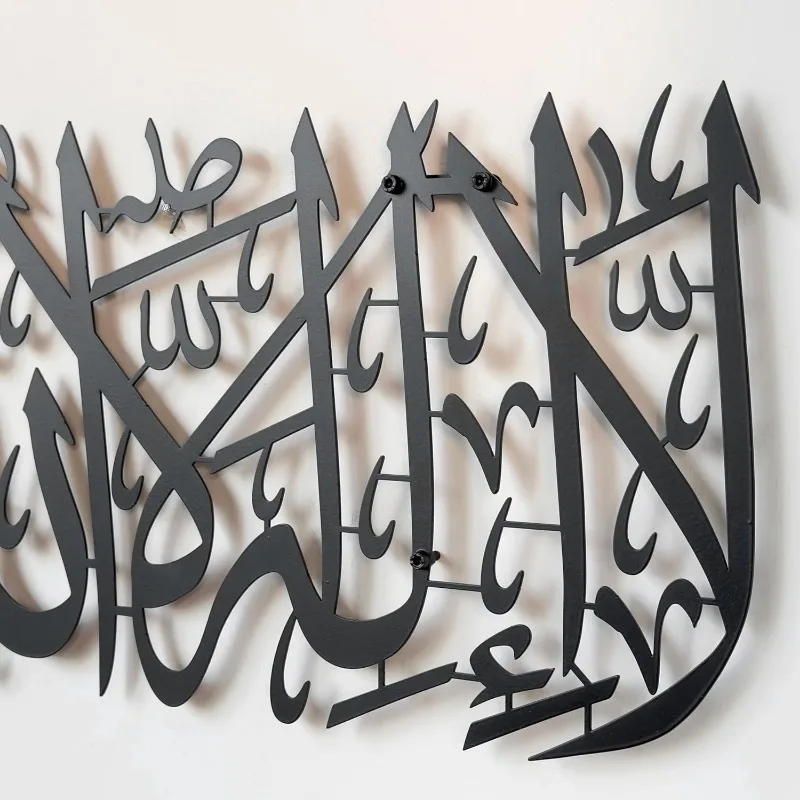 لَا إِلَهَ إِلَّا